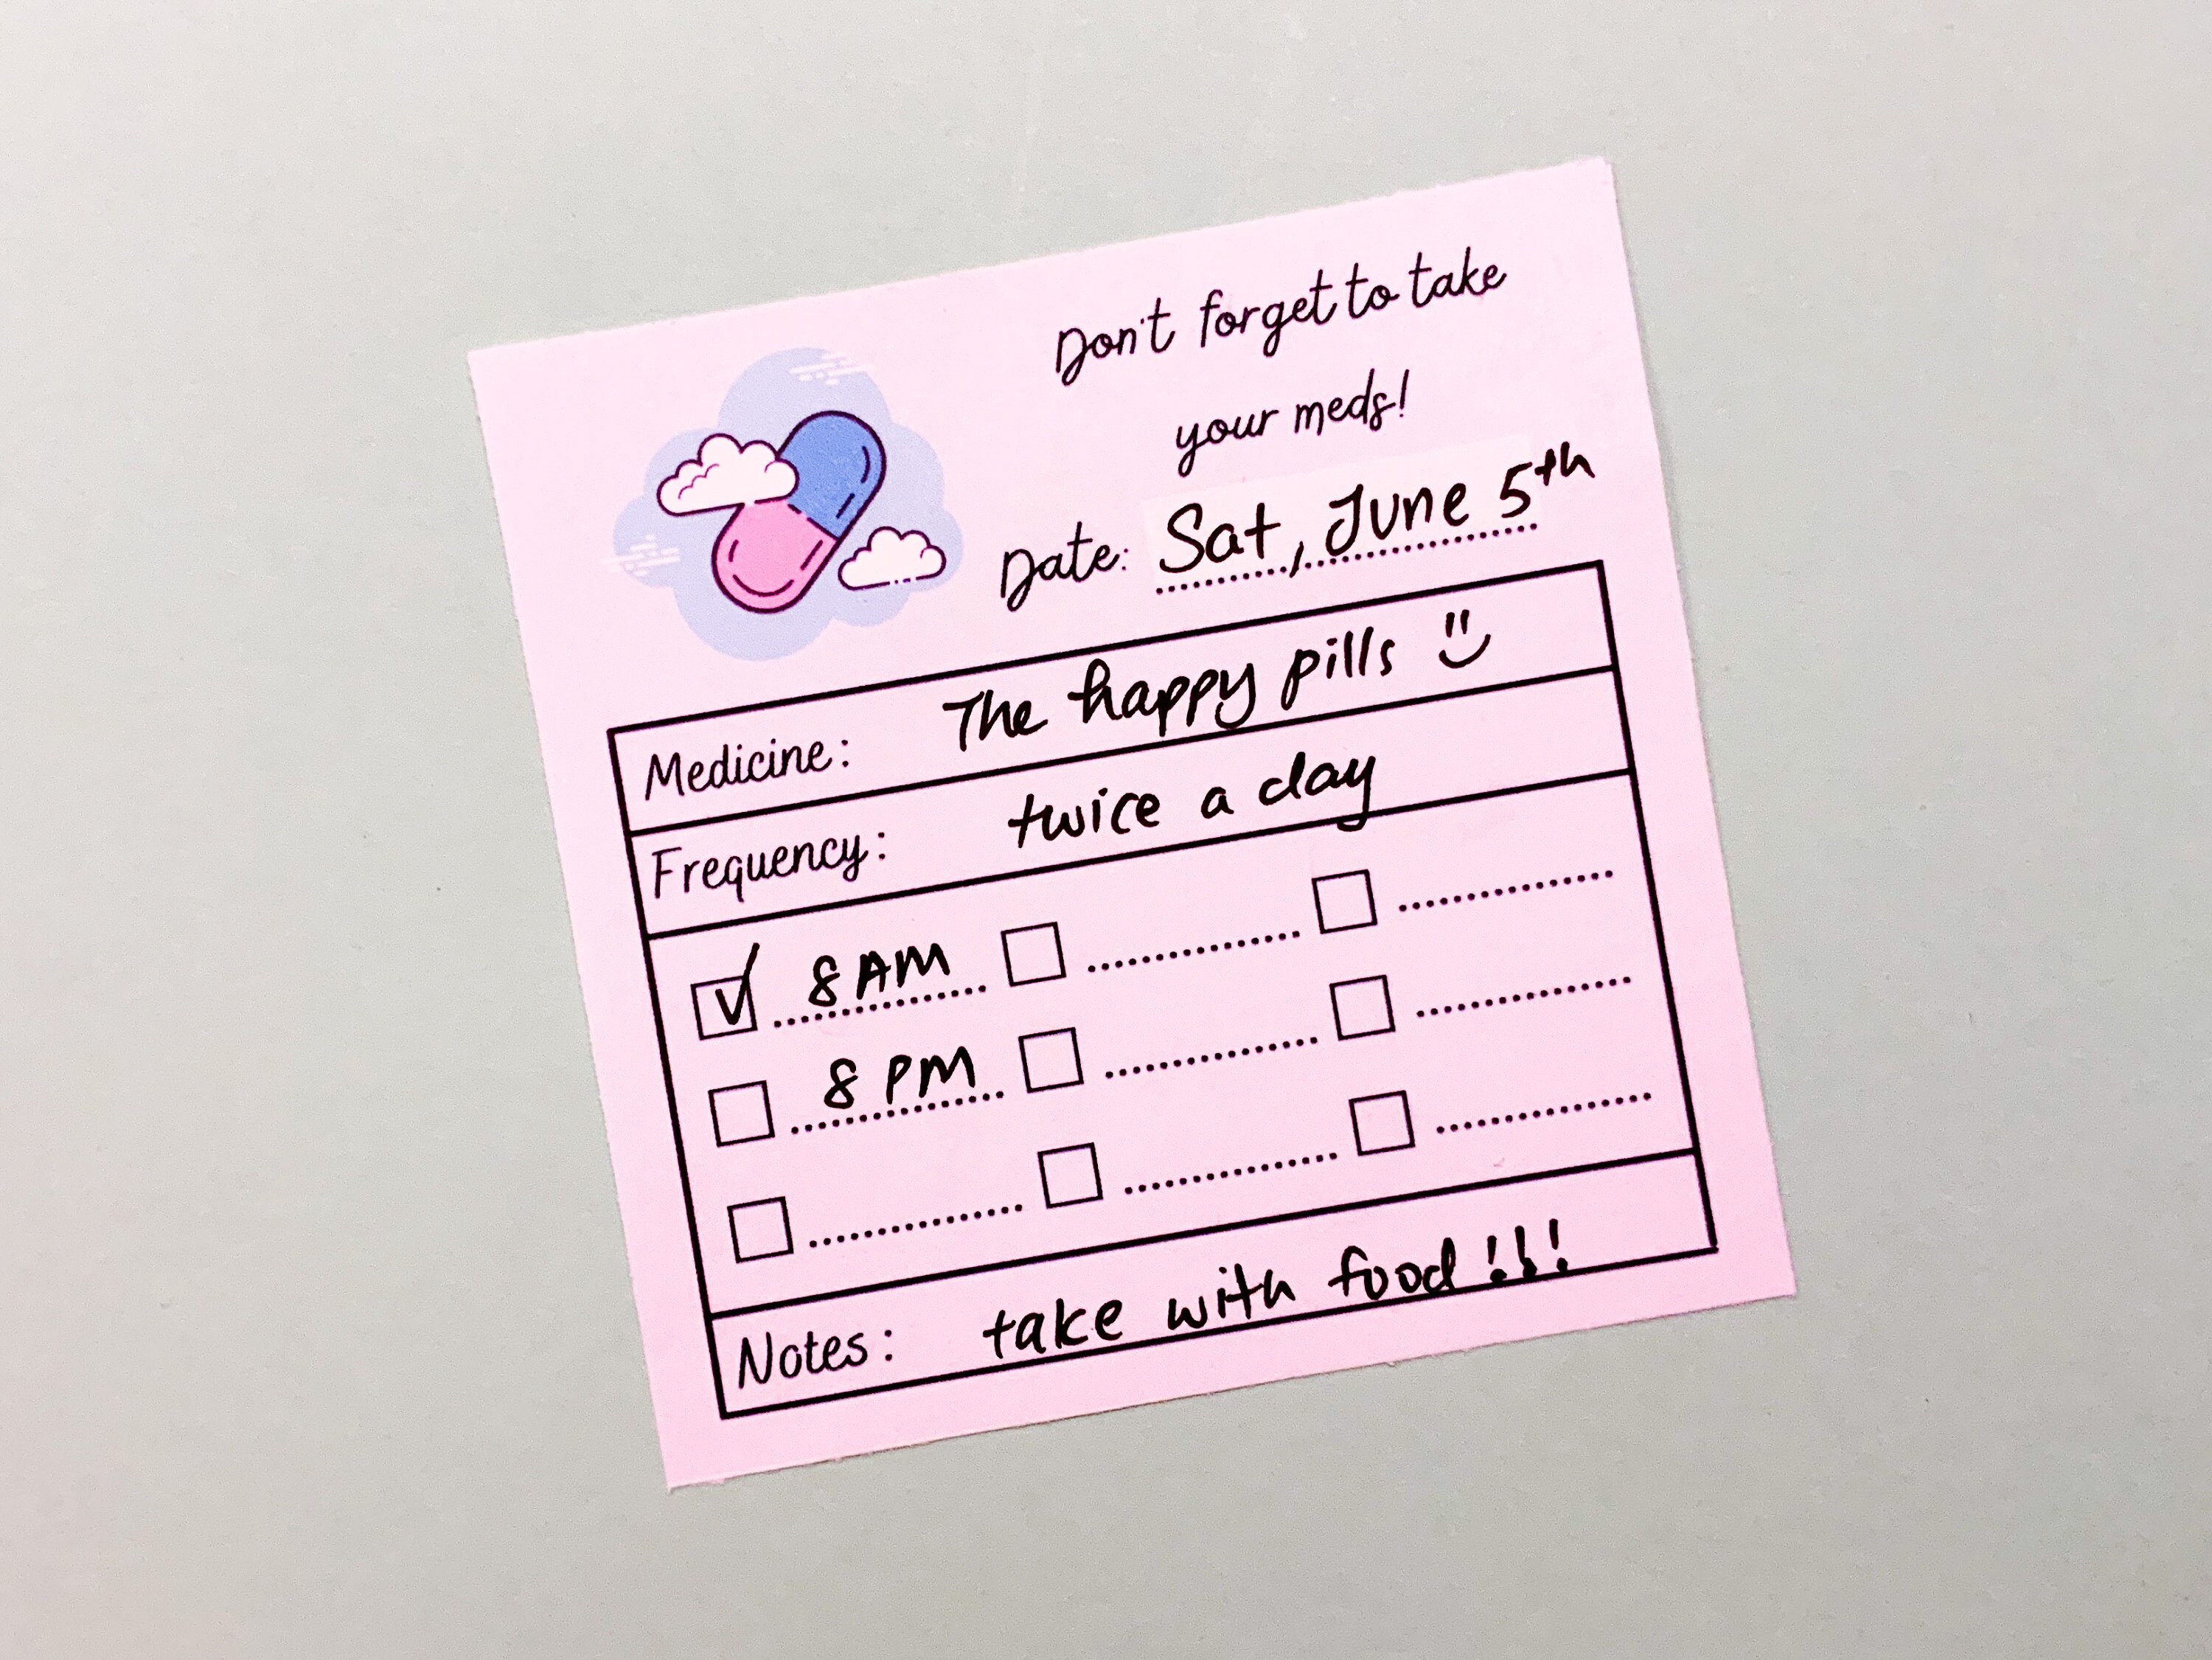 Don't forget to take
your meds!
Date: Sat, June 5th
Medicine: The happy pills
Frequency: twice a day
8 AM
8 PM
Notes: take with food!!!